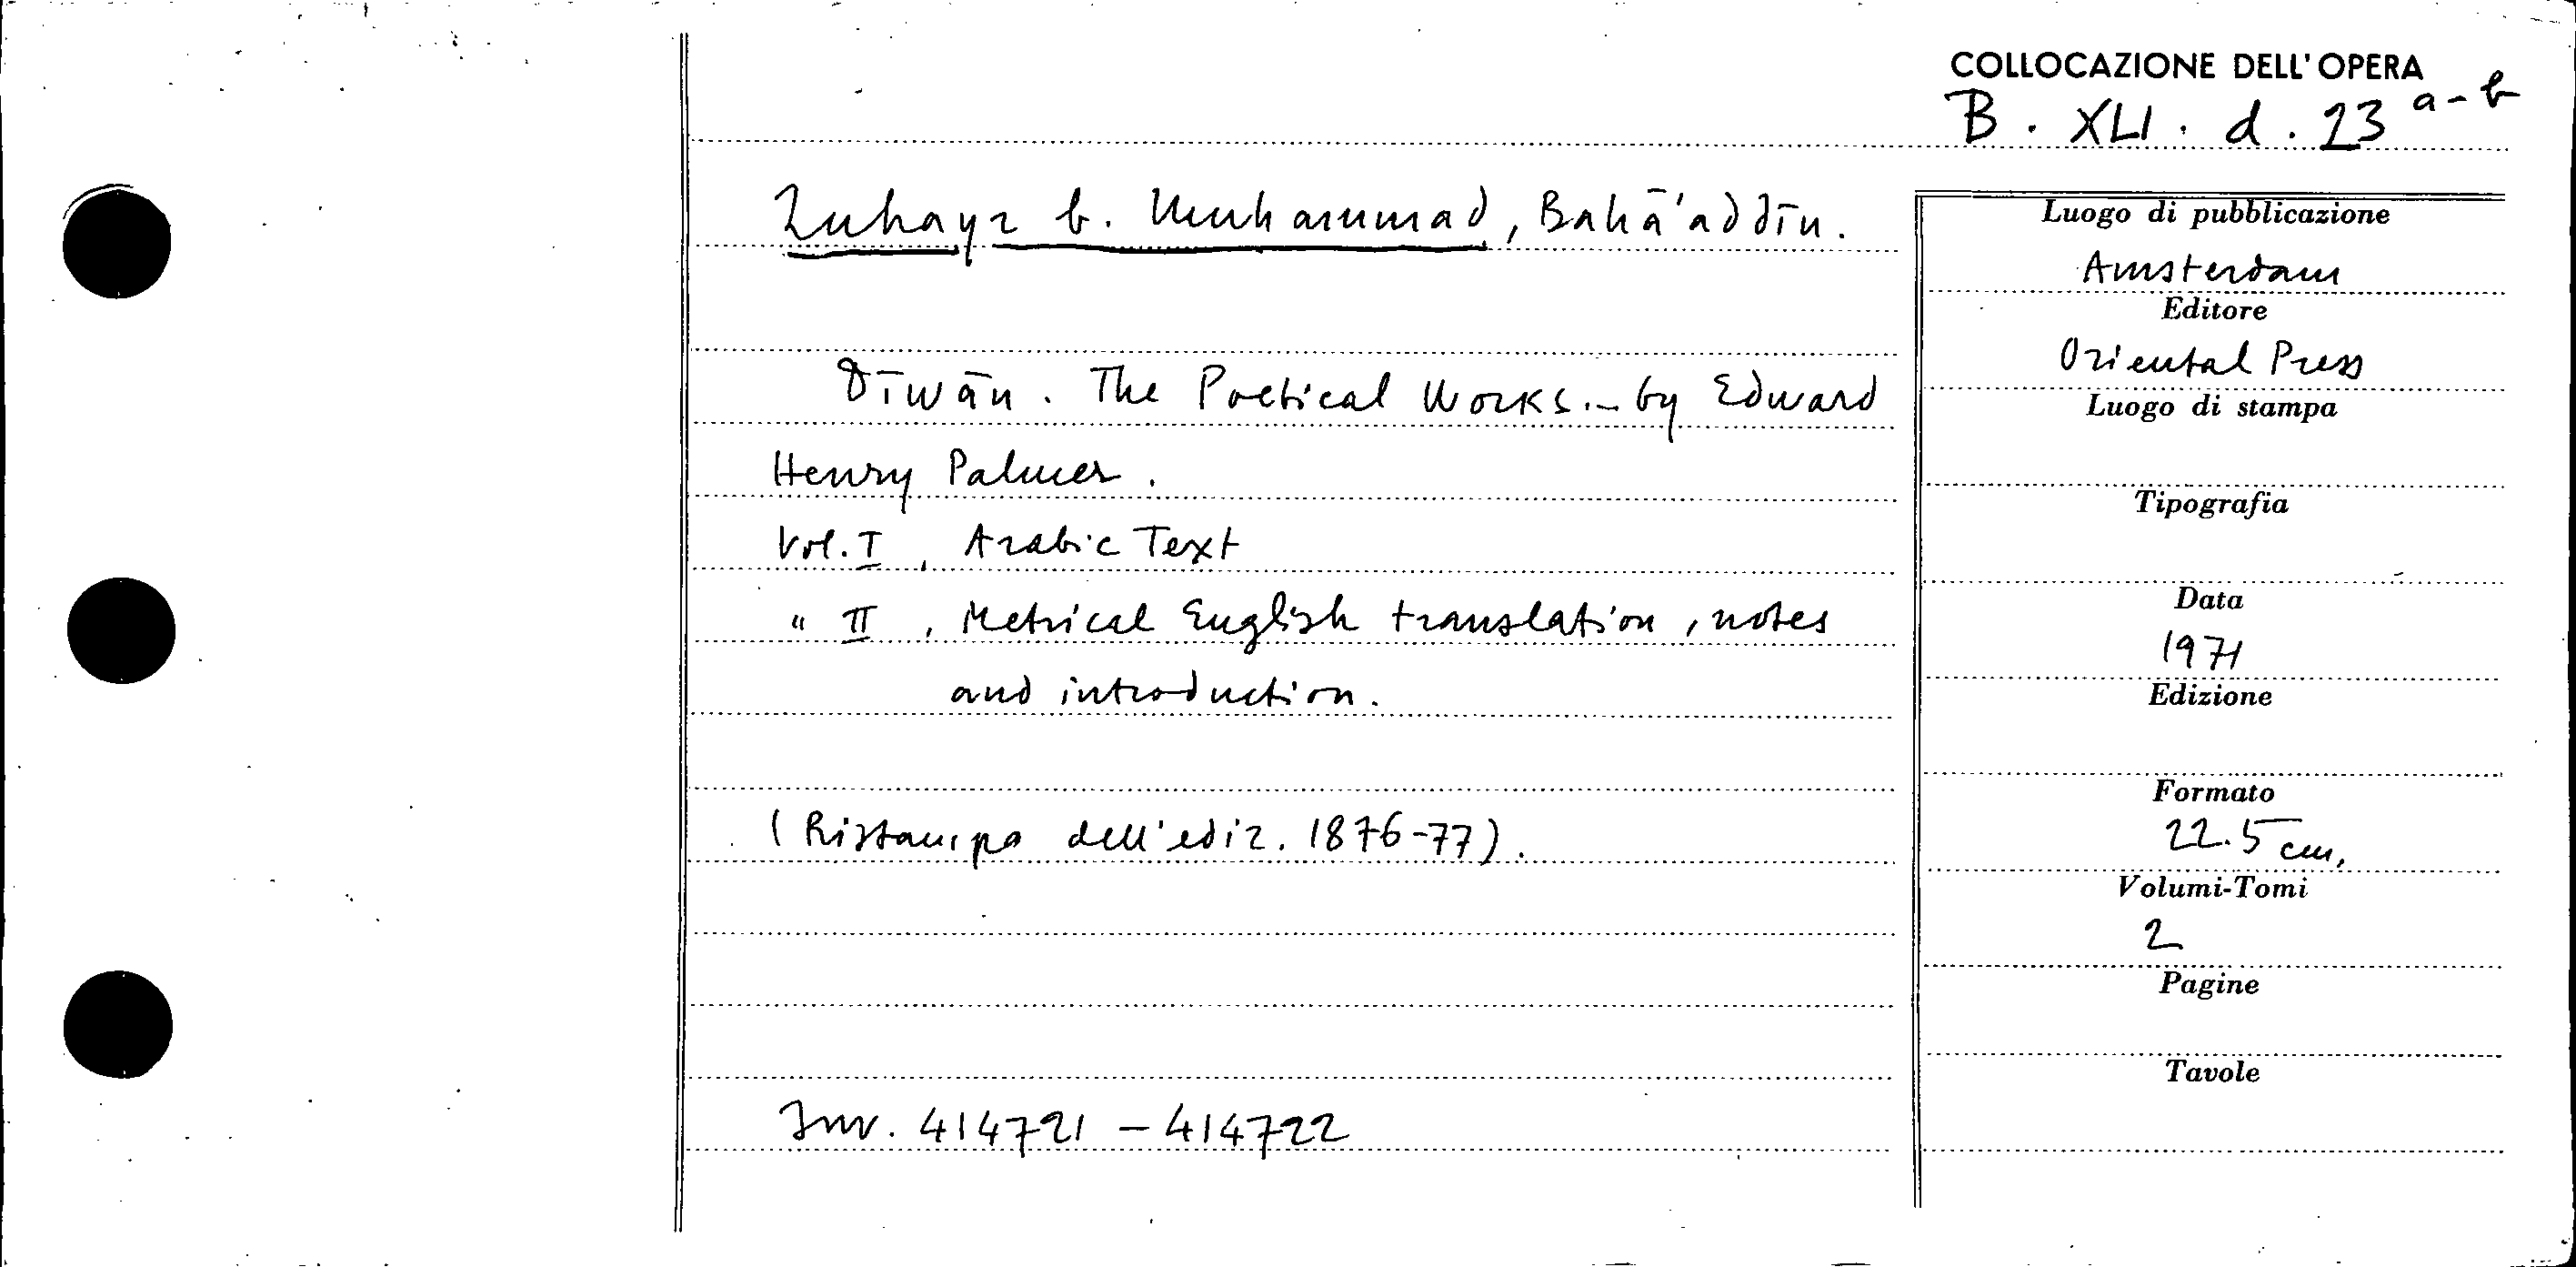 COLLOCAZIONE DELL'OPERA
B. XLI. d. 23 a-b
Zuhayr b. Muhammad, Bahā'addīn.
Dīwān. The Poetical Works.- by Edward
Henry Palmer.
Vol. I, Arabic Text
" II, Metrical English translation, notes
and introduction.
(Ristampa dell'ediz. 1876-77).
Inv. 414721 - 414722
Luogo di pubblicazione
Amsterdam
Editore
Oriental Press
Luogo di stampa
Tipografia
Data
1971
Edizione
Formato
22.5 cm.
Volumi-Tomi
2
Pagine
Tavole